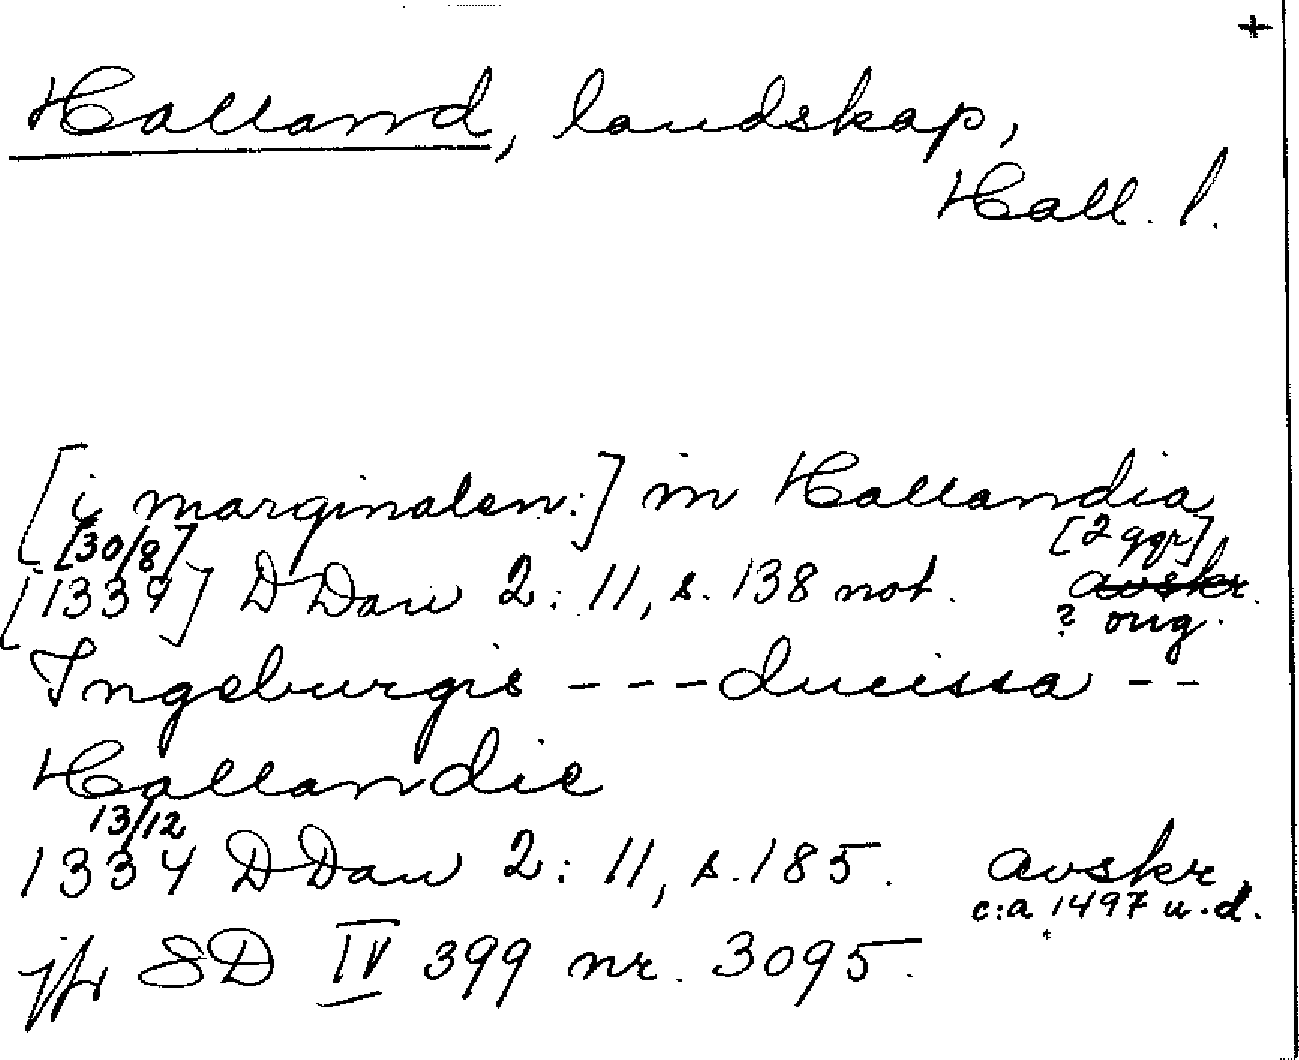 +
Halland, landskap,
Hall. l.
[i marginalen:] in Hallandia
[30/8] [2 ggr]
[1334] DDan 2: 11, s. 138 not. avskr.
? orig.
Ingeburgis --- ducissa --
Hallandie
13/12
1334 DDan 2: 11, s. 185. avskr.
c:a 1497 u.d.
jfr SD IV 399 nr. 3095.